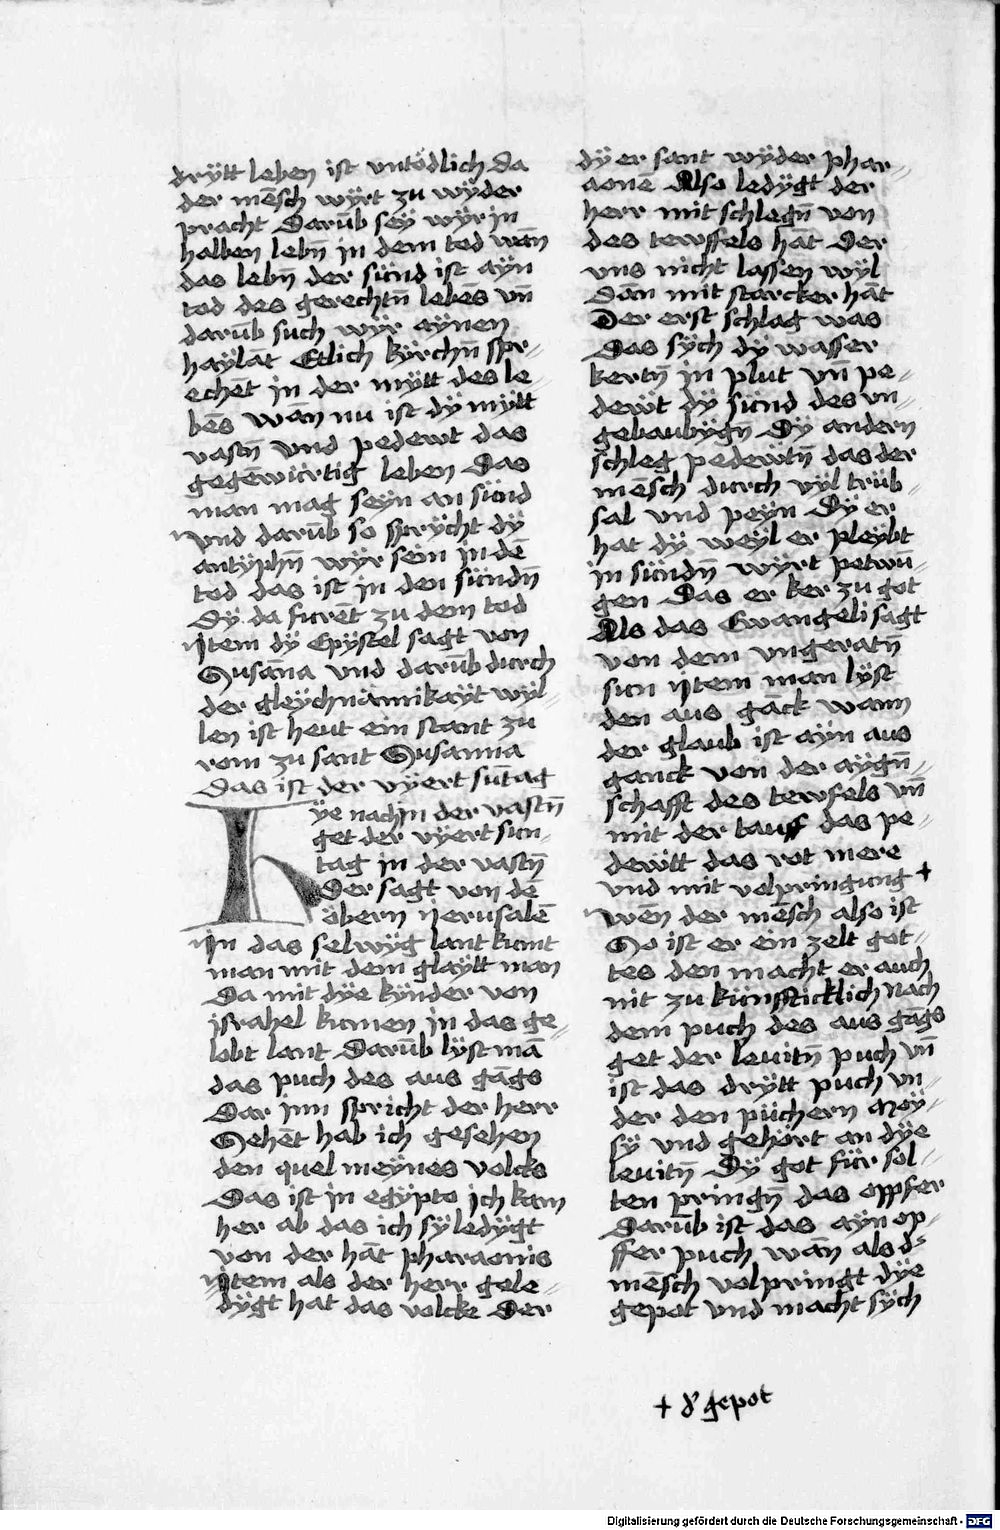 drÿtt leben ist vntödlich Da
der mēsch wÿrt zu wÿder
pracht Darūb seÿ wÿr in
halben lebn̄ in dem tod wān
das lebn̄ der sünd ist aÿn
tod des gerechtn̄ lebēs vn̄
darūb such wÿr aÿnen
haÿlat Etlich kÿrchn̄ spr-
echēt in der mÿtt des le-
bēs wān nu ist dÿ mÿtt
vastn̄ vnd pedewt das
gegēwürtig leben Das
man mag seÿn an sünd
vnd darūb so sprÿcht dÿ
antÿphn̄ wÿr sein in dē
tod das ist in den sündn̄
Dÿ da furēt zu dem tod
Jtem dÿ Epÿstel sagt von
Susāna vnd darūb durch
der gleÿchnāmikaÿt wÿl-
len ist heut ein stant zu
rom zu sant Susanna
Das ist der vÿert sūtag
Hÿe nach in der vastn̄
get der vÿert sun-
tag in der vastn̄
Der sagt von dē
öbern ierusalē
Jn das selwÿg lant kumt
man mit dem glaÿtt man
Da mit dÿe kÿnder von
israhel kumen in das ge-
lobt lant Darūb lÿst mā
das puch des aus gāgs
Dar inn spricht der herr
Sehēt hab ich gesehen
den quel meÿnes volcks
Das ist in egÿpto ich kam
her ab das ich sÿ ledÿgt
von der hāt pharaonis
Jtem als der herr gele-
dÿgt hat das volcke Der
dÿ er sant wÿder phar-
aonē Also ledÿgt der
herr mit schlegn̄ von
des tewffels hāt Der
vns nicht lassen wÿl
Dān mit starcker hāt
Der erst schlag was
Das sÿch dÿ wasser
kertn̄ in plut vn̄ pe-
dewt dÿ sünd des vn-
gebaubÿgn̄ Dÿ andern
schleg pedewtn̄ das der
mēsch durch vÿl trüb-
sal vnd peÿn Dÿ er
hat dÿ weÿl er pleÿbt
in sündn̄ wÿrt petwū-
gen Das er ker zu got
Als das Ewangeli sagt
von dem vngeratn̄
sun Jtem man lÿst
den aus gāck wann
der glaub ist aÿn aus
ganck von der aÿgn̄-
schafft des tewfels vn̄
mit der tauff das pe-
dewtt das rot mere
vnd mit volpringung +
wēn der mēsch also ist
So ist er ein zelt got-
tes den macht er auch
nit zu künffticklich nach
dem puch des aus gāgs
get der leuitn̄ puch vn̄
ist das drÿtt puch vn-
der den püchern moÿ-
sÿ vnd gehört an dÿe
leuitn̄ Dÿ got für sol-
ten pringn̄ das oppfer
Darūb ist das aÿn op-
ffer puch wān als d'
mēsch volpringt dÿe
gepot vnd macht sÿch
+ d' gepot
Digitalisierung gefördert durch die Deutsche Forschungsgemeinschaft - DFG